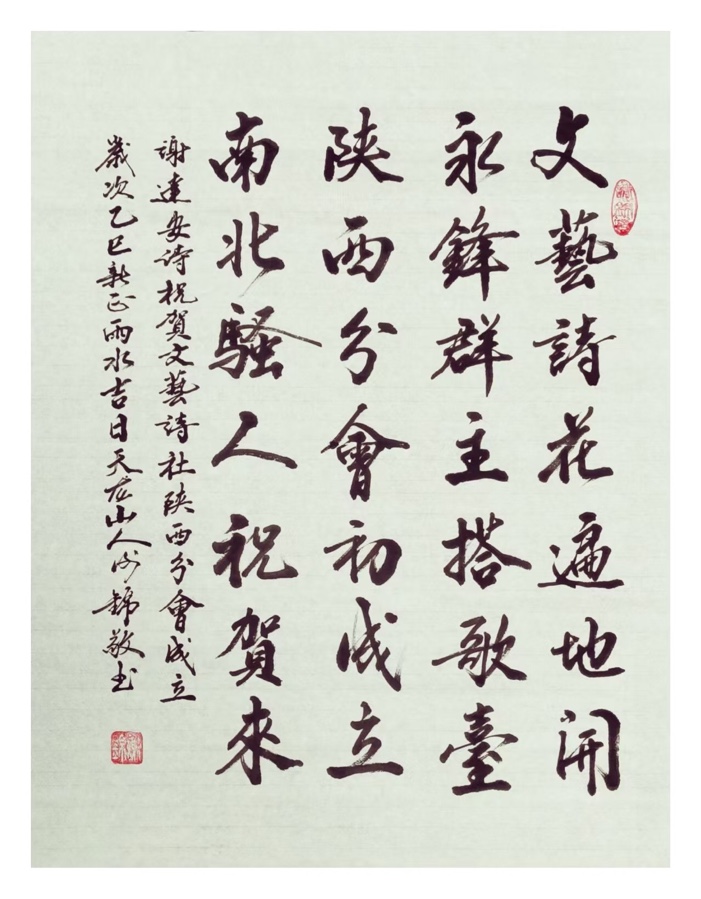 文藝詩花遍地開
永鋒群主搭歌臺
陝西分會初成立
南北騷人祝賀來
謝達安詩祝賀文藝詩社陝西分會成立
歲次乙巳新正雨水吉日天龙山人谢錦敬书